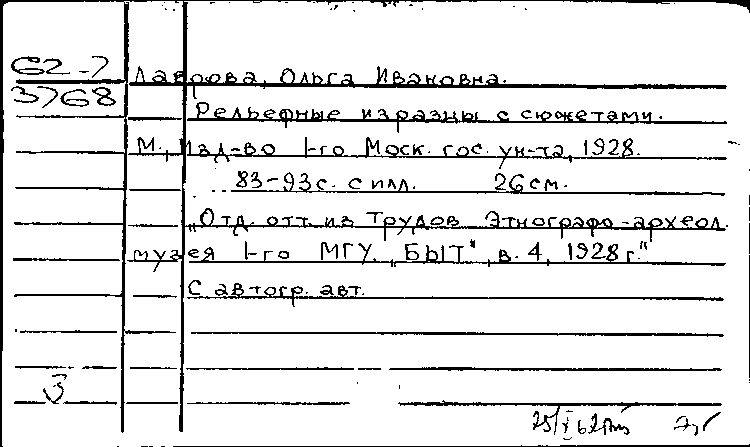 62-7
3768
Лаврова, Ольга Ивановна.
Рельефные изразцы с сюжетами.
М., Изд-во 1-го Моск. гос. ун-та, 1928.
83-93 с. с илл. 26 см.
„Отд. отт. из Трудов Этнографо-археол.
музея 1-го МГУ. „БЫТ", в. 4, 1928 г."
С автогр. авт.
3
25/X 62